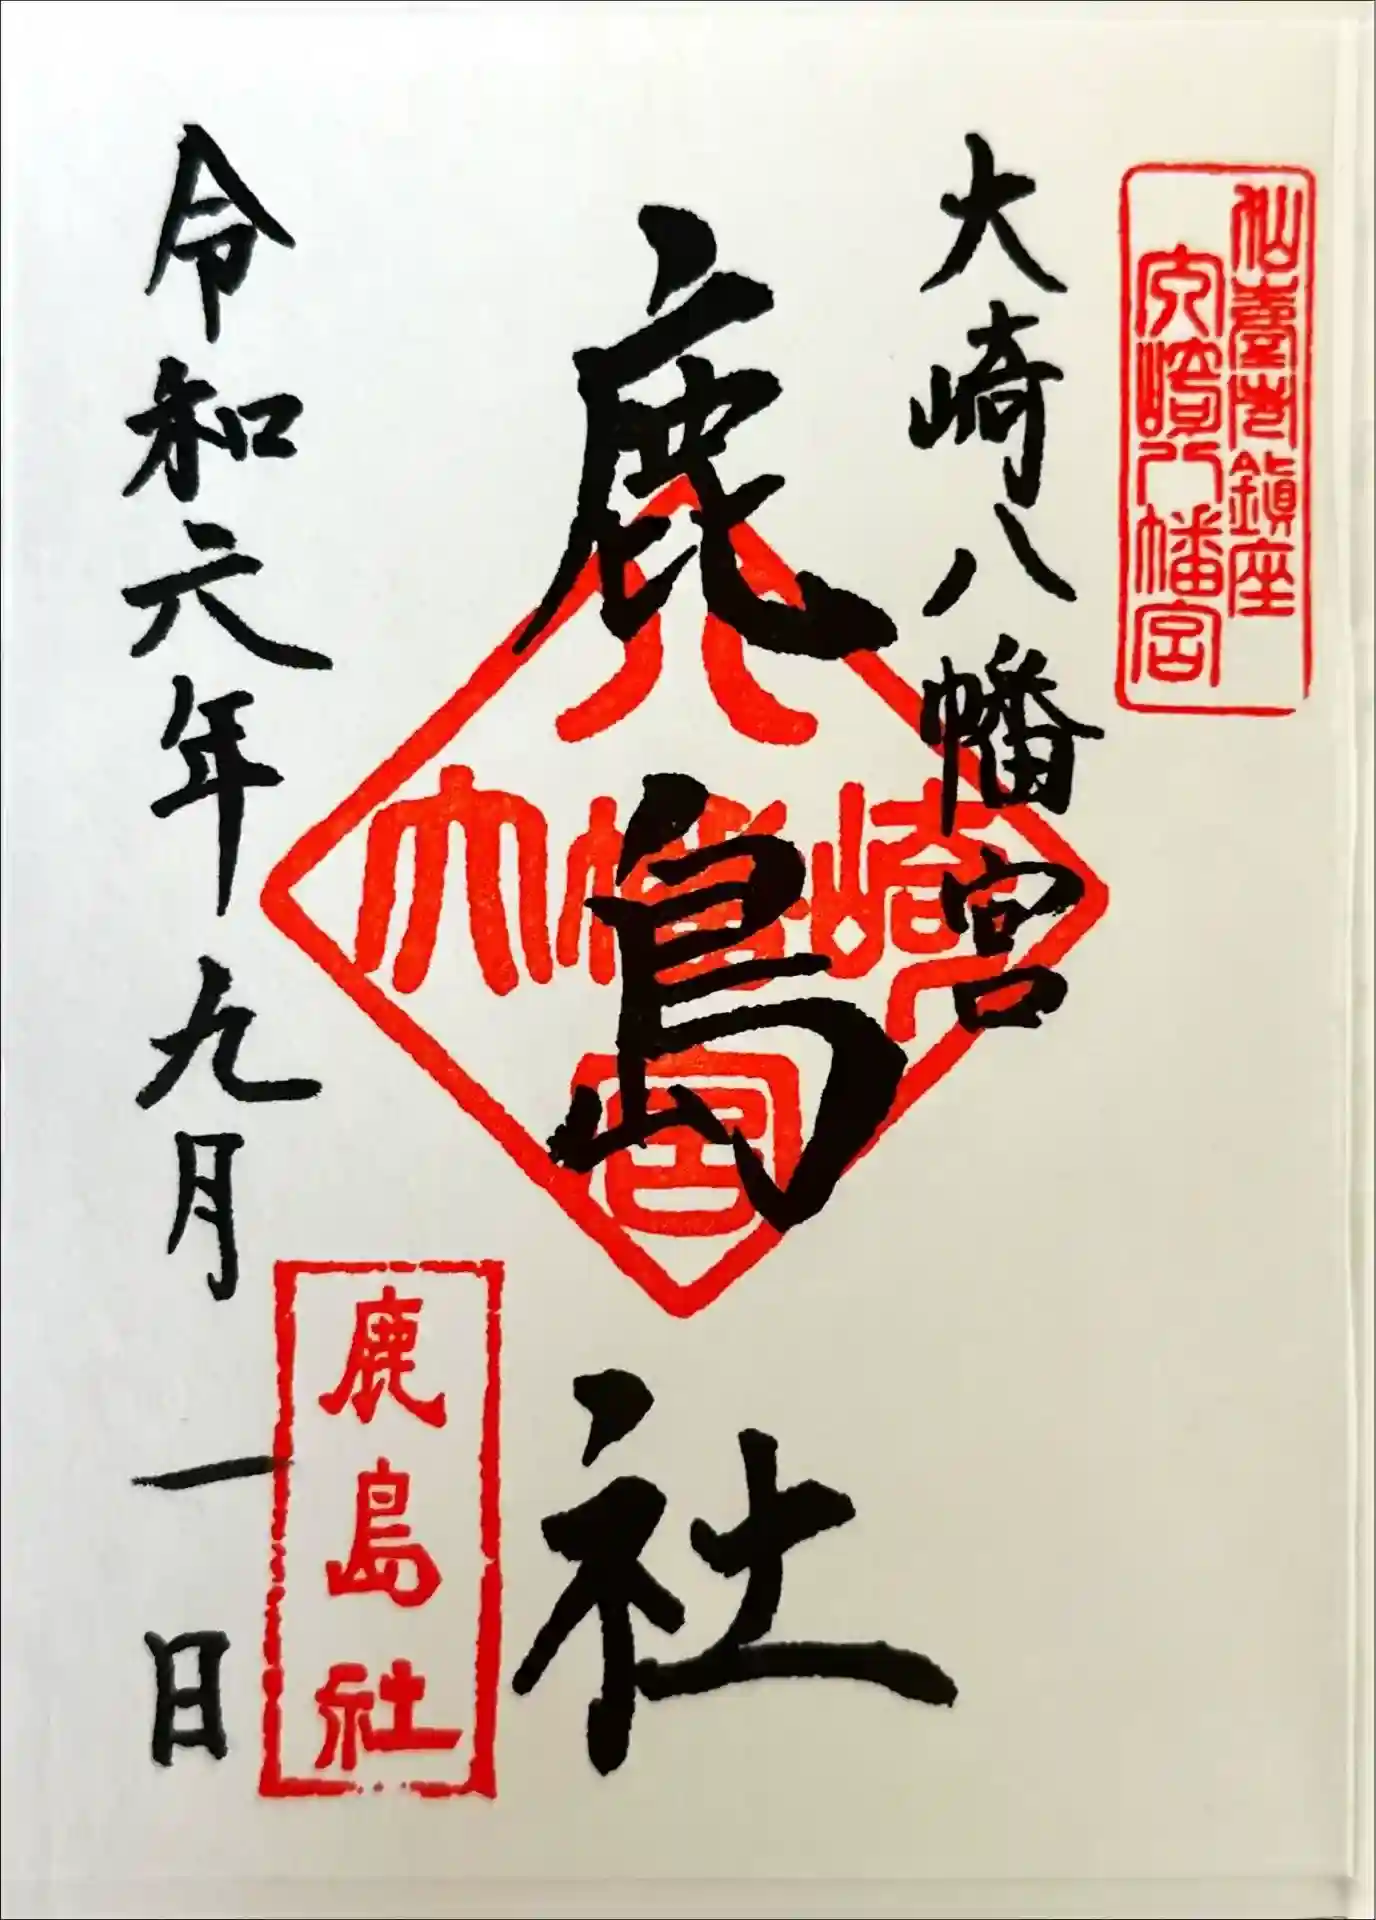 仙臺市鎮座
大崎八幡宮
大崎八幡宮
鹿島社
大崎八幡宮
鹿島社
令和六年九月一日